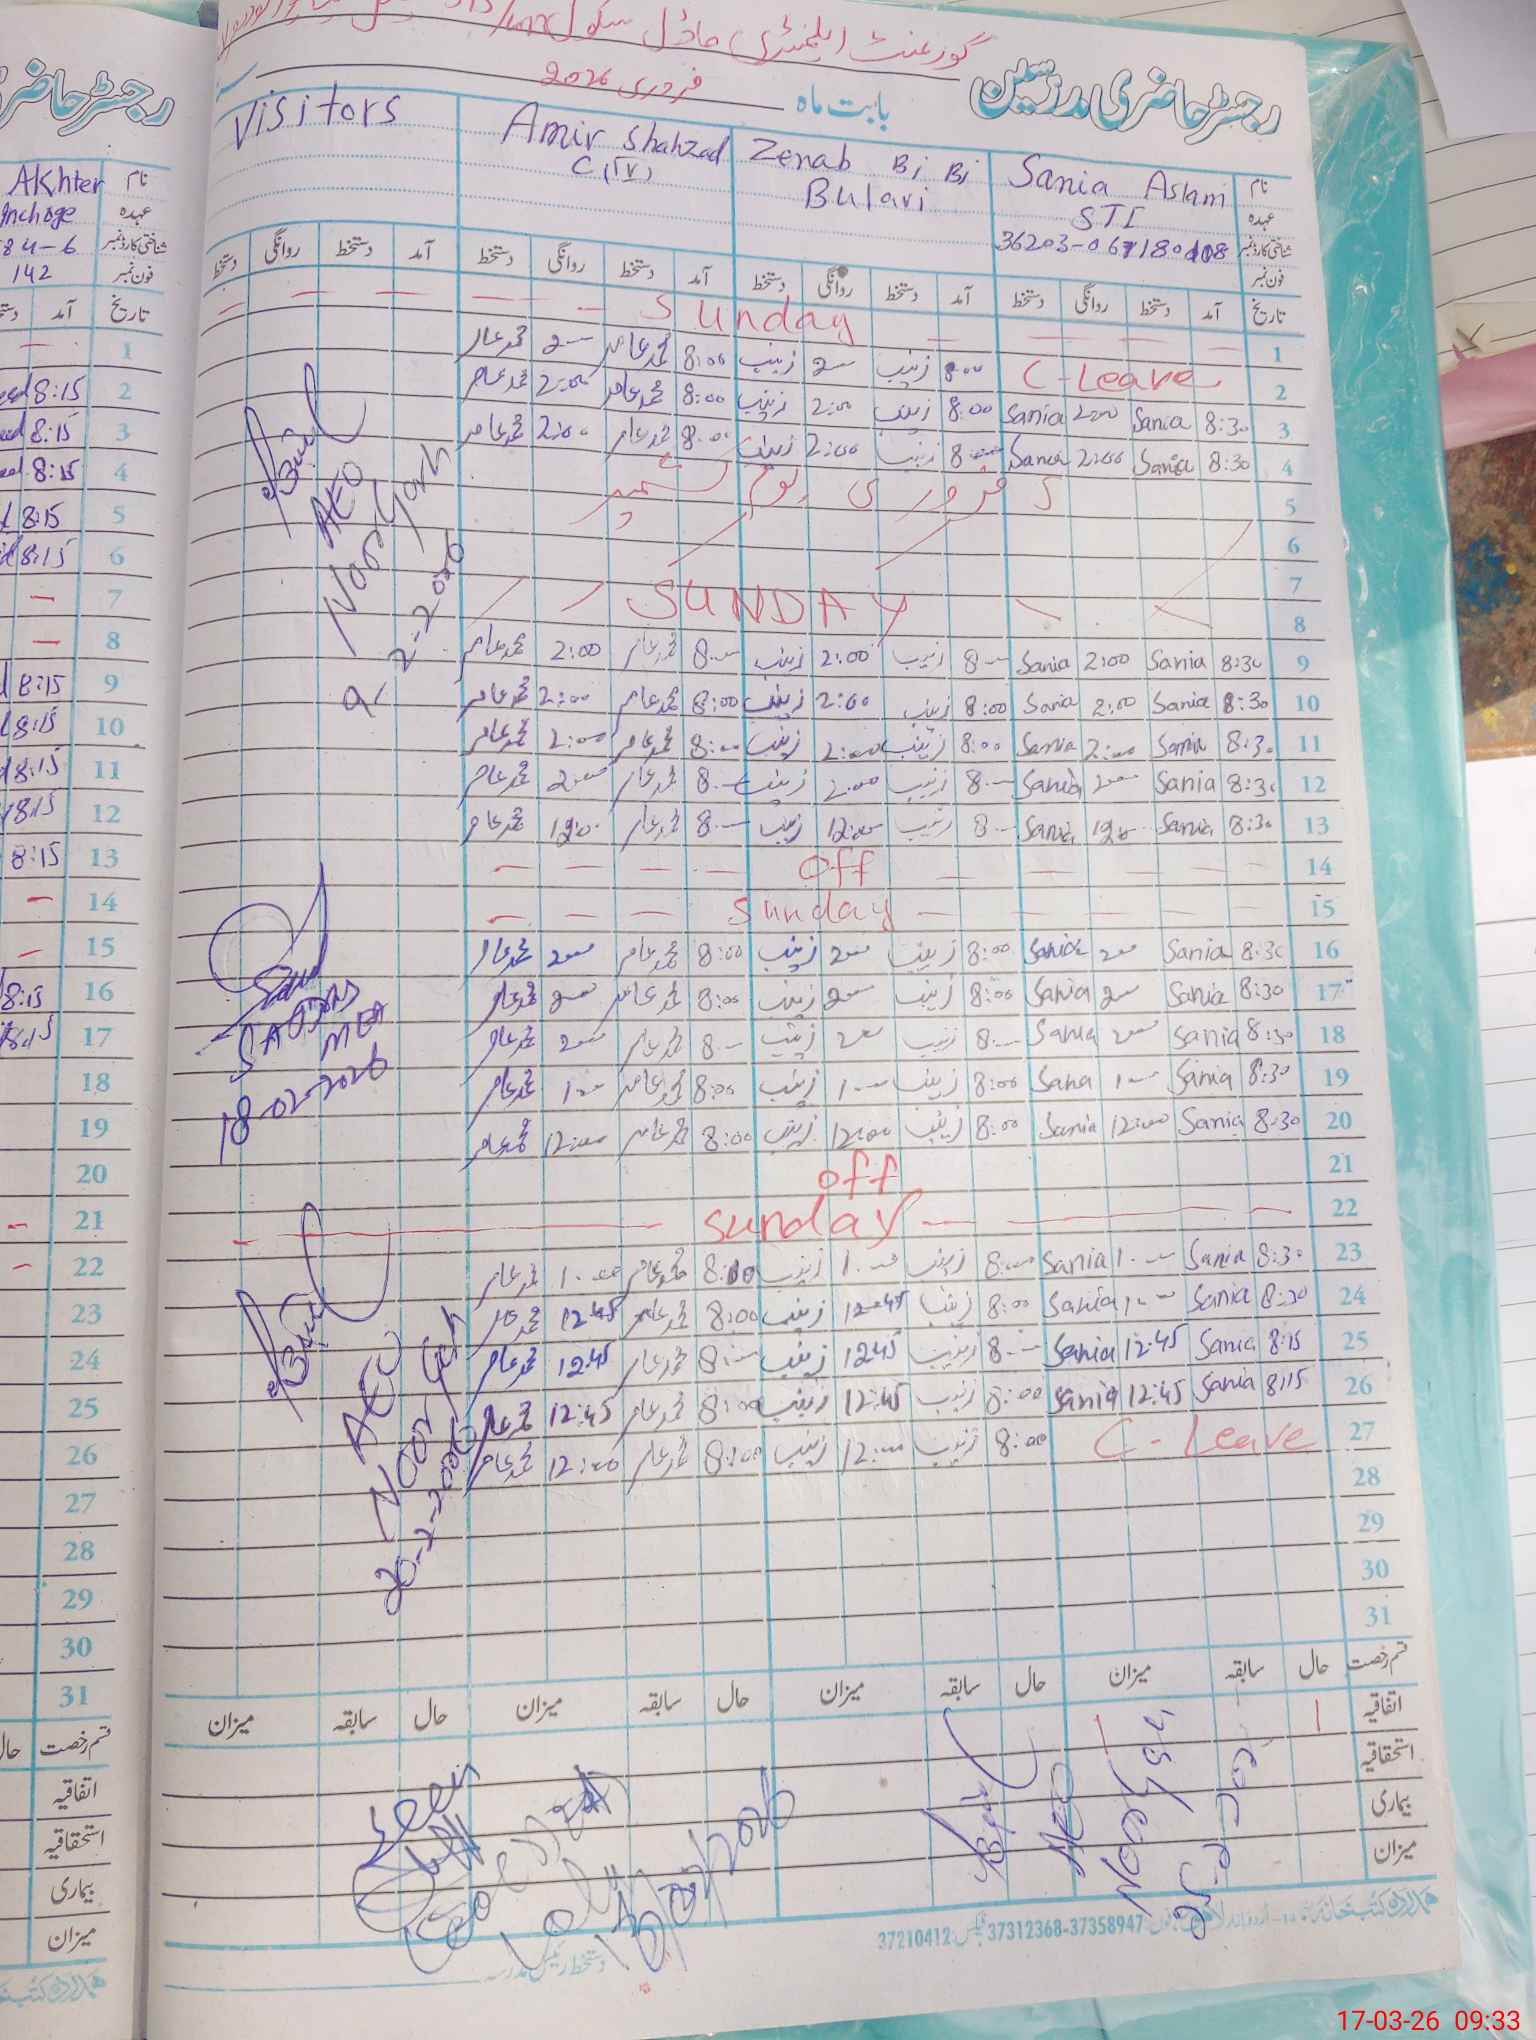 گورنمنٹ ایلیمنٹری ماڈل سکول
رجسٹر حاضری مدرسین
بابت ماہ فروری 2026
Visitors
Amir Shahzad
C (IV)
Zenab Bi Bi
Bulavi
Sania Aslam
STI
نام
عہدہ
شناختی کارڈ نمبر
فون نمبر
تاریخ آمد دستخط روانگی دستخط آمد دستخط روانگی دستخط آمد دستخط روانگی دستخط آمد دستخط روانگی دستخط
1 Sunday
2 C-Leave 8:00 زینب 2:00 زینب 8:00 محمد عامر 2:00 محمد عامر
3 8:30 Sania 2:00 Sania 8:00 زینب 2:00 زینب 8:00 محمد عامر 2:00 محمد عامر
4 8:30 Sania 2:00 Sania 8:00 زینب 2:00 زینب 8:00 محمد عامر 2:00 محمد عامر
5 5 فروری یوم کشمیر
6
7
8 SUNDAY
9 8:30 Sania 2:00 Sania 8:00 زینب 2:00 زینب 8:00 محمد عامر 2:00 محمد عامر
10 8:30 Sania 2:00 Sania 8:00 زینب 2:00 زینب 8:00 محمد عامر 2:00 محمد عامر
11 8:30 Sania 2:00 Sania 8:00 زینب 2:00 زینب 8:00 محمد عامر 2:00 محمد عامر
12 8:30 Sania 2:00 Sania 8:00 زینب 2:00 زینب 8:00 محمد عامر 2:00 محمد عامر
13 8:30 Sania Sania 8:00 زینب 12:00 زینب 8:00 محمد عامر محمد عامر
14 Off
15 Sunday
16 8:30 Sania 2:00 Sania 8:00 زینب 2:00 زینب 8:00 محمد عامر 2:00 محمد عامر
17 8:30 Sania 2:00 Sania 8:00 زینب 2:00 زینب 8:00 محمد عامر 2:00 محمد عامر
18 8:30 Sania 2:00 Sania 8:00 زینب 2:00 زینب 8:00 محمد عامر 2:00 محمد عامر
19 8:30 Sania 1:00 Sania 8:00 زینب 1:00 زینب 8:00 محمد عامر 1:00 محمد عامر
20 8:30 Sania 12:00 Sania 8:00 زینب 12:00 زینب 8:00 محمد عامر 12:00 محمد عامر
21 off
22 Sunday
23 8:30 Sania 1:00 Sania 8:00 زینب 1:00 زینب 8:00 محمد عامر 1:00 محمد عامر
24 8:30 Sania 1:00 Sania 8:00 زینب 12:45 زینب 8:00 محمد عامر 12:45 محمد عامر
25 8:15 Sania 12:45 Sania 8:00 زینب 12:45 زینب 8:00 محمد عامر 12:45 محمد عامر
26 8:15 Sania 12:45 Sania 8:00 زینب 12:45 زینب 8:00 محمد عامر 12:45 محمد عامر
27 C-Leave 8:00 زینب 12:00 زینب 8:00 محمد عامر 12:00 محمد عامر
28
29
30
31
AEO
Noor Garh
9-2-2026
MEA
18-02-2026
AEO
Noor Garh
20-2-2026
قسم رخصت حال سابقہ میزان حال سابقہ میزان حال سابقہ میزان حال سابقہ میزان
اتفاقیہ 1
استحقاقیہ
بیماری
میزان
Seen
AEO
دستخط رئیس مدرسہ
37312368-37358947 فیکس: 37210412
رجسٹر حاضری
Akhter نام
Incharge عہدہ
84-6 شناختی کارڈ نمبر
142 فون نمبر
تاریخ آمد
1
2 8:15
3 8:15
4 8:15
5 8:15
6 8:15
7
8
9 8:15
10 8:15
11 8:15
12 8:15
13 8:15
14
15
16 8:15
17 8:15
18
19
20
21
22
23
24
25
26
27
28
29
30
31
قسم رخصت حال
اتفاقیہ
استحقاقیہ
بیماری
میزان
17-03-26 09:33